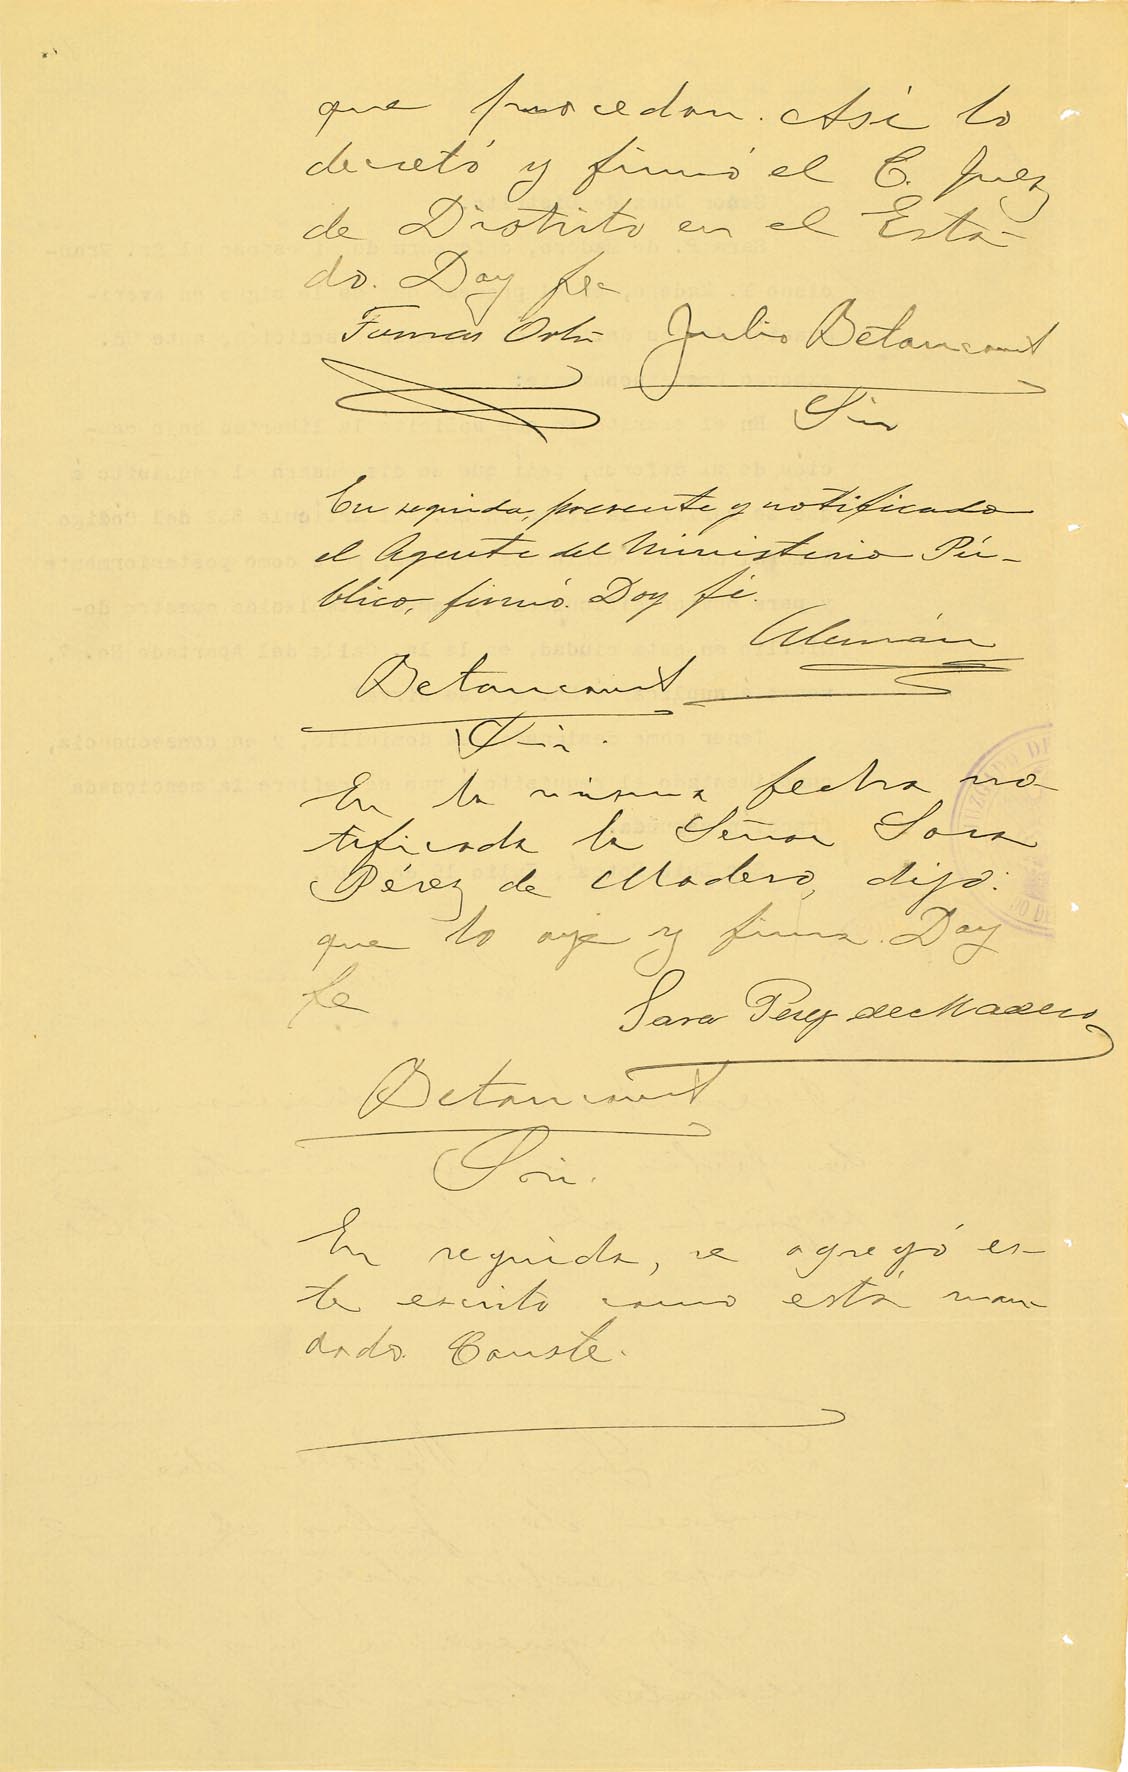 que procedan. Así lo
decretó y firmó el C. Juez
de Distrito en el Esta-
do. Doy fe
Tomas Ortiz Julio Betancourt
Srio
En seguida, presente y notificado
el Agente del Ministerio Pú-
blico, firmó. Doy fé.
Alemán
Betancourt
Srio.
En la misma fecha no-
tificada la Señora Sara
Pérez de Madero, dijo:
que lo oye y firma. Doy
fe
Sara Perez de Madero
Betancourt
Srio.
En seguida, se agregó es-
te escrito como está man-
dado. Conste.